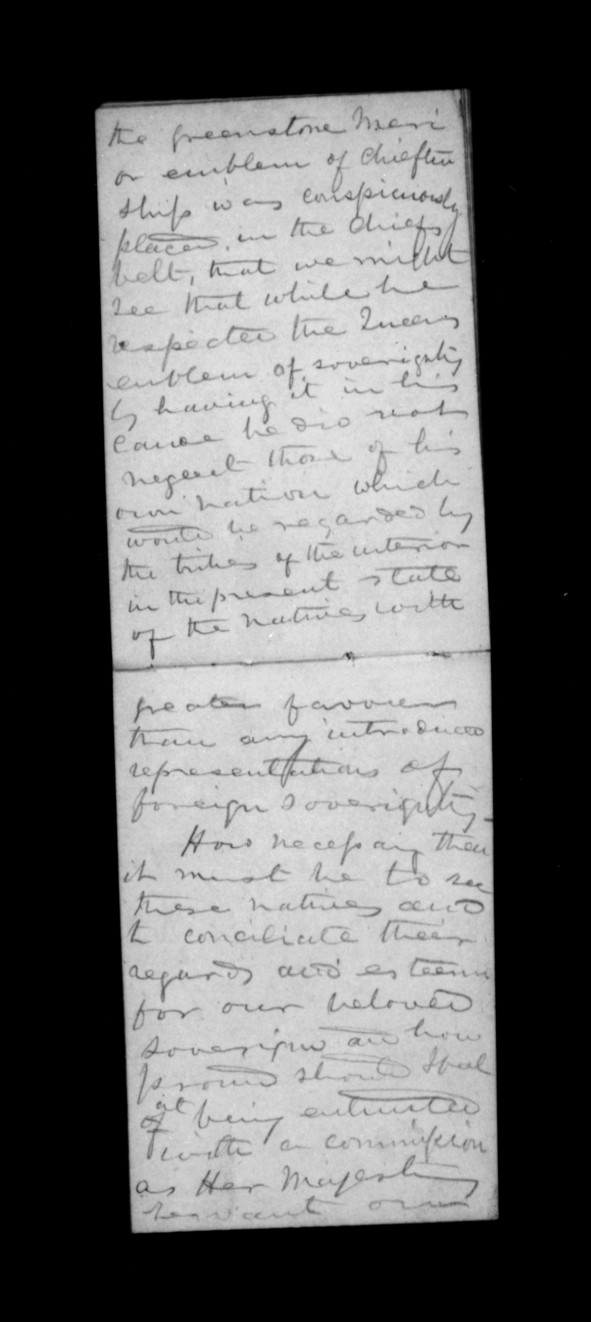 the greenstone Meri
or emblem of Chieftin
ship was conspicuously
placed, in the Chiefs
belt, that we might
see that while he
respected the Queens
emblem of soverignty
by having it in his
Canoe he did not
neglect those of his
own nation which
would be regarded by
the tribes of the interior
in the present state
of the natives with
greater favour
than any introduced
representations of
foreign soverignty-
How necessary then
it must be to see
these natives and
to conciliate their
regards and esteem
for our beloved
soverign and how
proud should I feel
at
of being entrusted
with a commission
as Her Majesty
servant our